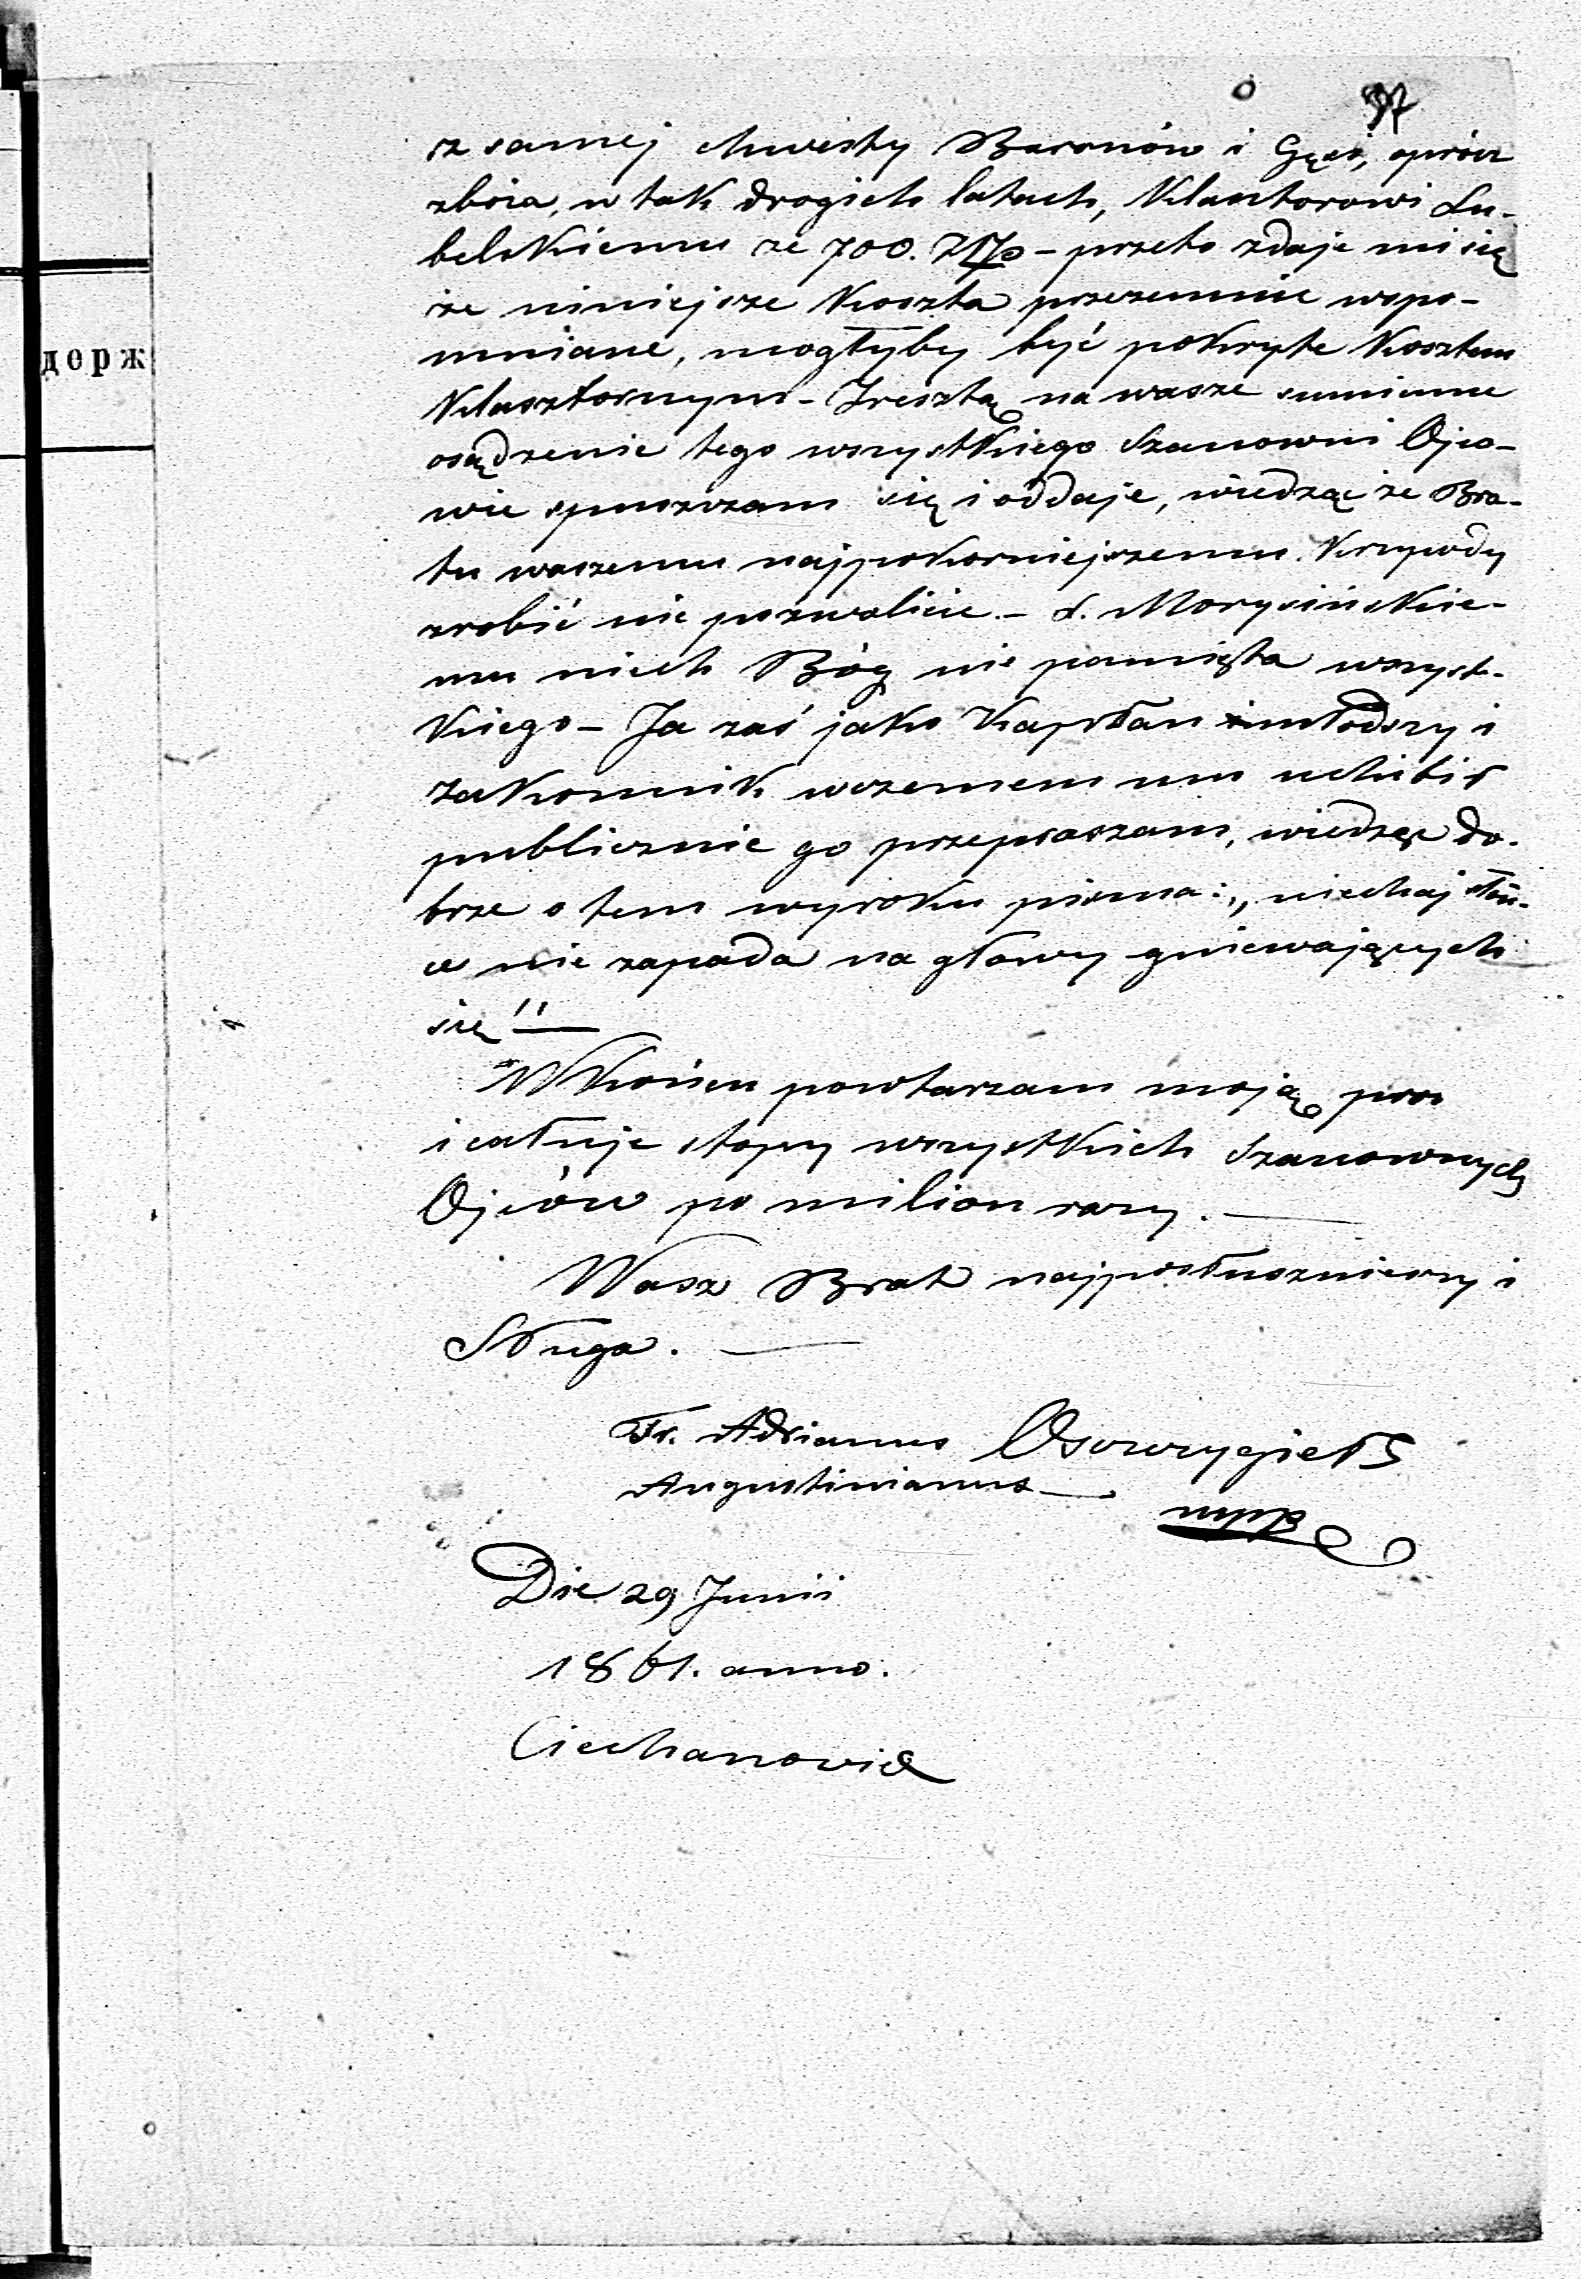 97
z samej chwisty Baranów i Gęsi, oprócz
zboża, w tak drogich latach, Klasztorowi Lu-
belskiemu ze 700. Złp - przeto zdaje mi się
że niniejsze koszta przezemnie wspo-
mniane, mogłyby być pokryte kosztem
Klasztornym - Zresztą na wasze sumienne
osądzenie tego wszystkiego Szanowni Ojco-
wie spuszczam się i oddaje, wiedząc że Bra-
tu waszemu najpokorniejszemu krzywdy
zrobić nie pozwolicie. - X. Morysińskie-
mu niech Bóg nie pamięta wszyst-
kiego - Ja zaś jako Kapłan młodszy i
Zakonnik wczemem mu uchibił
publicznie go przepraszam, wiedząc do-
brze o tem wyroku pisma: „niechaj słoń-
ce nie zapada na głowy gniewających
się"
W końcu powtarzam moją pros
i całuje stopy wszystkich Szanownych
Ojców po milion razy.
Wasz Brat najposłuszniejszy i
Sługa.
Fr. Adrianus
Augustinianus
mpp
Die 29 Junii
1861. anno.
Ciechanowiec
держ